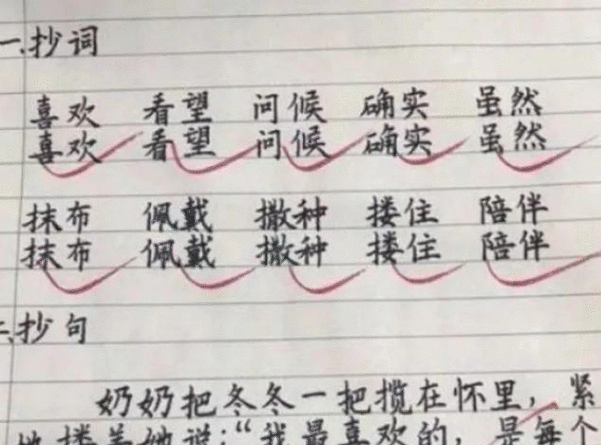 一、抄词
喜欢 看望 问候 确实 虽然
喜欢 看望 问候 确实 虽然
抹布 佩戴 撒种 搂住 陪伴
抹布 佩戴 撒种 搂住 陪伴
二、抄句
奶奶把冬冬一把揽在怀里，紧
地搂着她说：“我最喜欢的，是每个